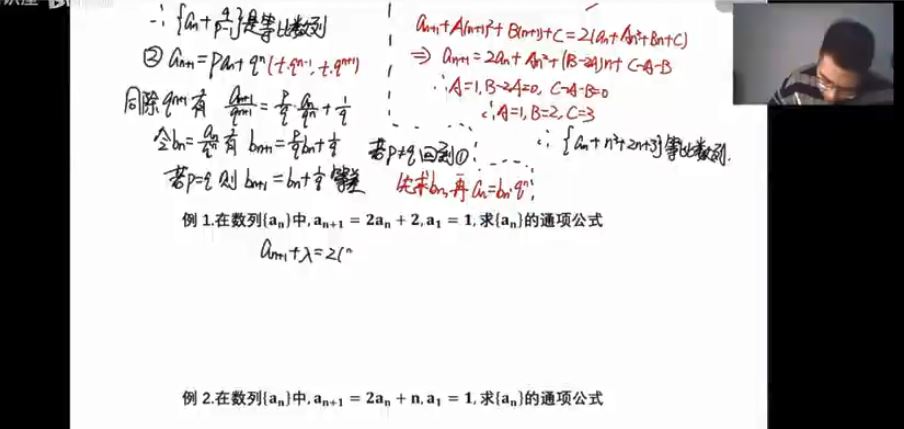 ∴ {aₙ + q/(p-1)}是等比数列
② aₙ₊₁ = paₙ + qⁿ (t·qⁿ⁻¹, t·qⁿ⁺¹)
同除qⁿ⁺¹有 aₙ₊₁/qⁿ⁺¹ = p/q · aₙ/qⁿ + 1/q
令bₙ = aₙ/qⁿ 有 bₙ₊₁ = p/q bₙ + 1/q 若p≠q 回到①
若p=q 则 bₙ₊₁ = bₙ + 1/q 等差 先求bₙ, 再 aₙ = bₙ·qⁿ
aₙ₊₁ + A(n+1)² + B(n+1) + C = 2(aₙ + An² + Bn + C)
⇒ aₙ₊₁ = 2aₙ + An² + (B-2A)n + C-A-B
∴ A=1, B-2A=0, C-A-B=0
∴ A=1, B=2, C=3
∴ {aₙ + n² + 2n + 3}等比数列.
例 1.在数列{aₙ}中, aₙ₊₁ = 2aₙ + 2, a₁ = 1, 求{aₙ}的通项公式
aₙ₊₁ + λ = 2(
例 2.在数列{aₙ}中, aₙ₊₁ = 2aₙ + n, a₁ = 1, 求{aₙ}的通项公式